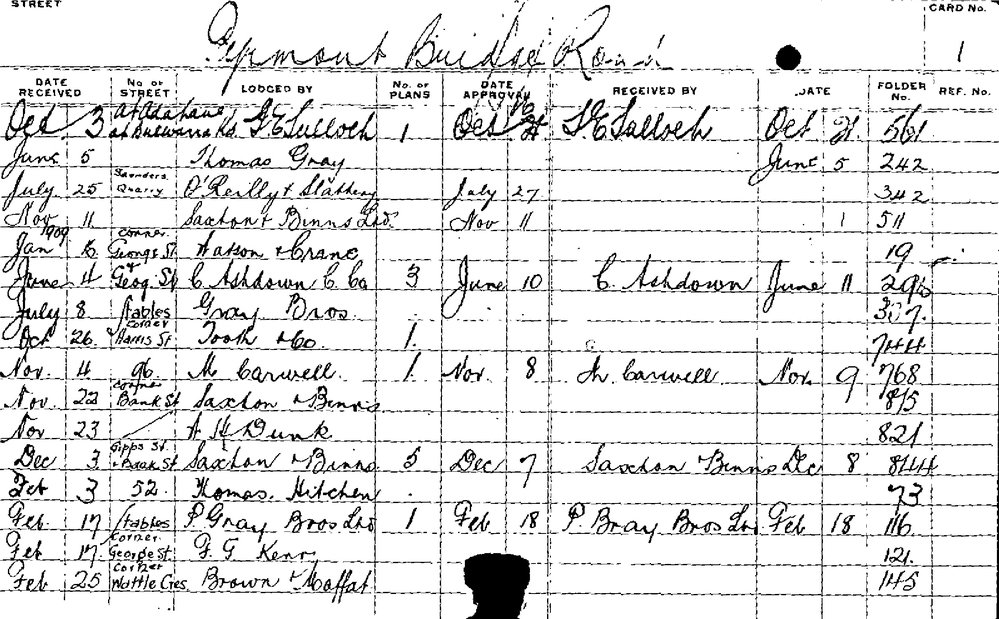 STREET CARD No.
Pyrmont Bridge Road 1
DATE RECEIVED No. OF STREET LODGED BY No. OF PLANS DATE APPROVAL RECEIVED BY DATE FOLDER No. REF. No.
Oct 3 at Bulwarra Rd. 1 Oct Oct 561
June 5 Thomas Gray June 5 242
July 25 Saunders Quarry O'Reilly & Slattery July 27 342
Nov 11 Saxton & Binns Ltd. Nov 11 1 511
1909
Jan 6 corner George St Watson & Crane 19
June 4 Geog. St C. Ashdown C. Co 3 June 10 C. Ashdown June 11 296
July 8 stables Gray Bros. 337.
Oct 26 corner Harris St Tooth & Co. 1. 744
Nov. 4 96. M Carwell. 1. Nov. 8 M Carwell Nov. 9 768
Nov. 22 corner Bank St Saxton & Binns 815
Nov 23 A H Dunk 821
Dec 3 Gipps St. & Bank St Saxton & Binns 5 Dec 7 Saxton & Binns Dec 8 844
Feb 3 52. Thomas. Hitchen 73
Feb. 17 stables P. Gray Bros Ltd 1 Feb 18 P. Bray Bros Ltd Feb 18 116
Feb 17. corner George St. F. G Kerr 121.
Feb 25 corner Wattle Cres. Brown & Moffat 145